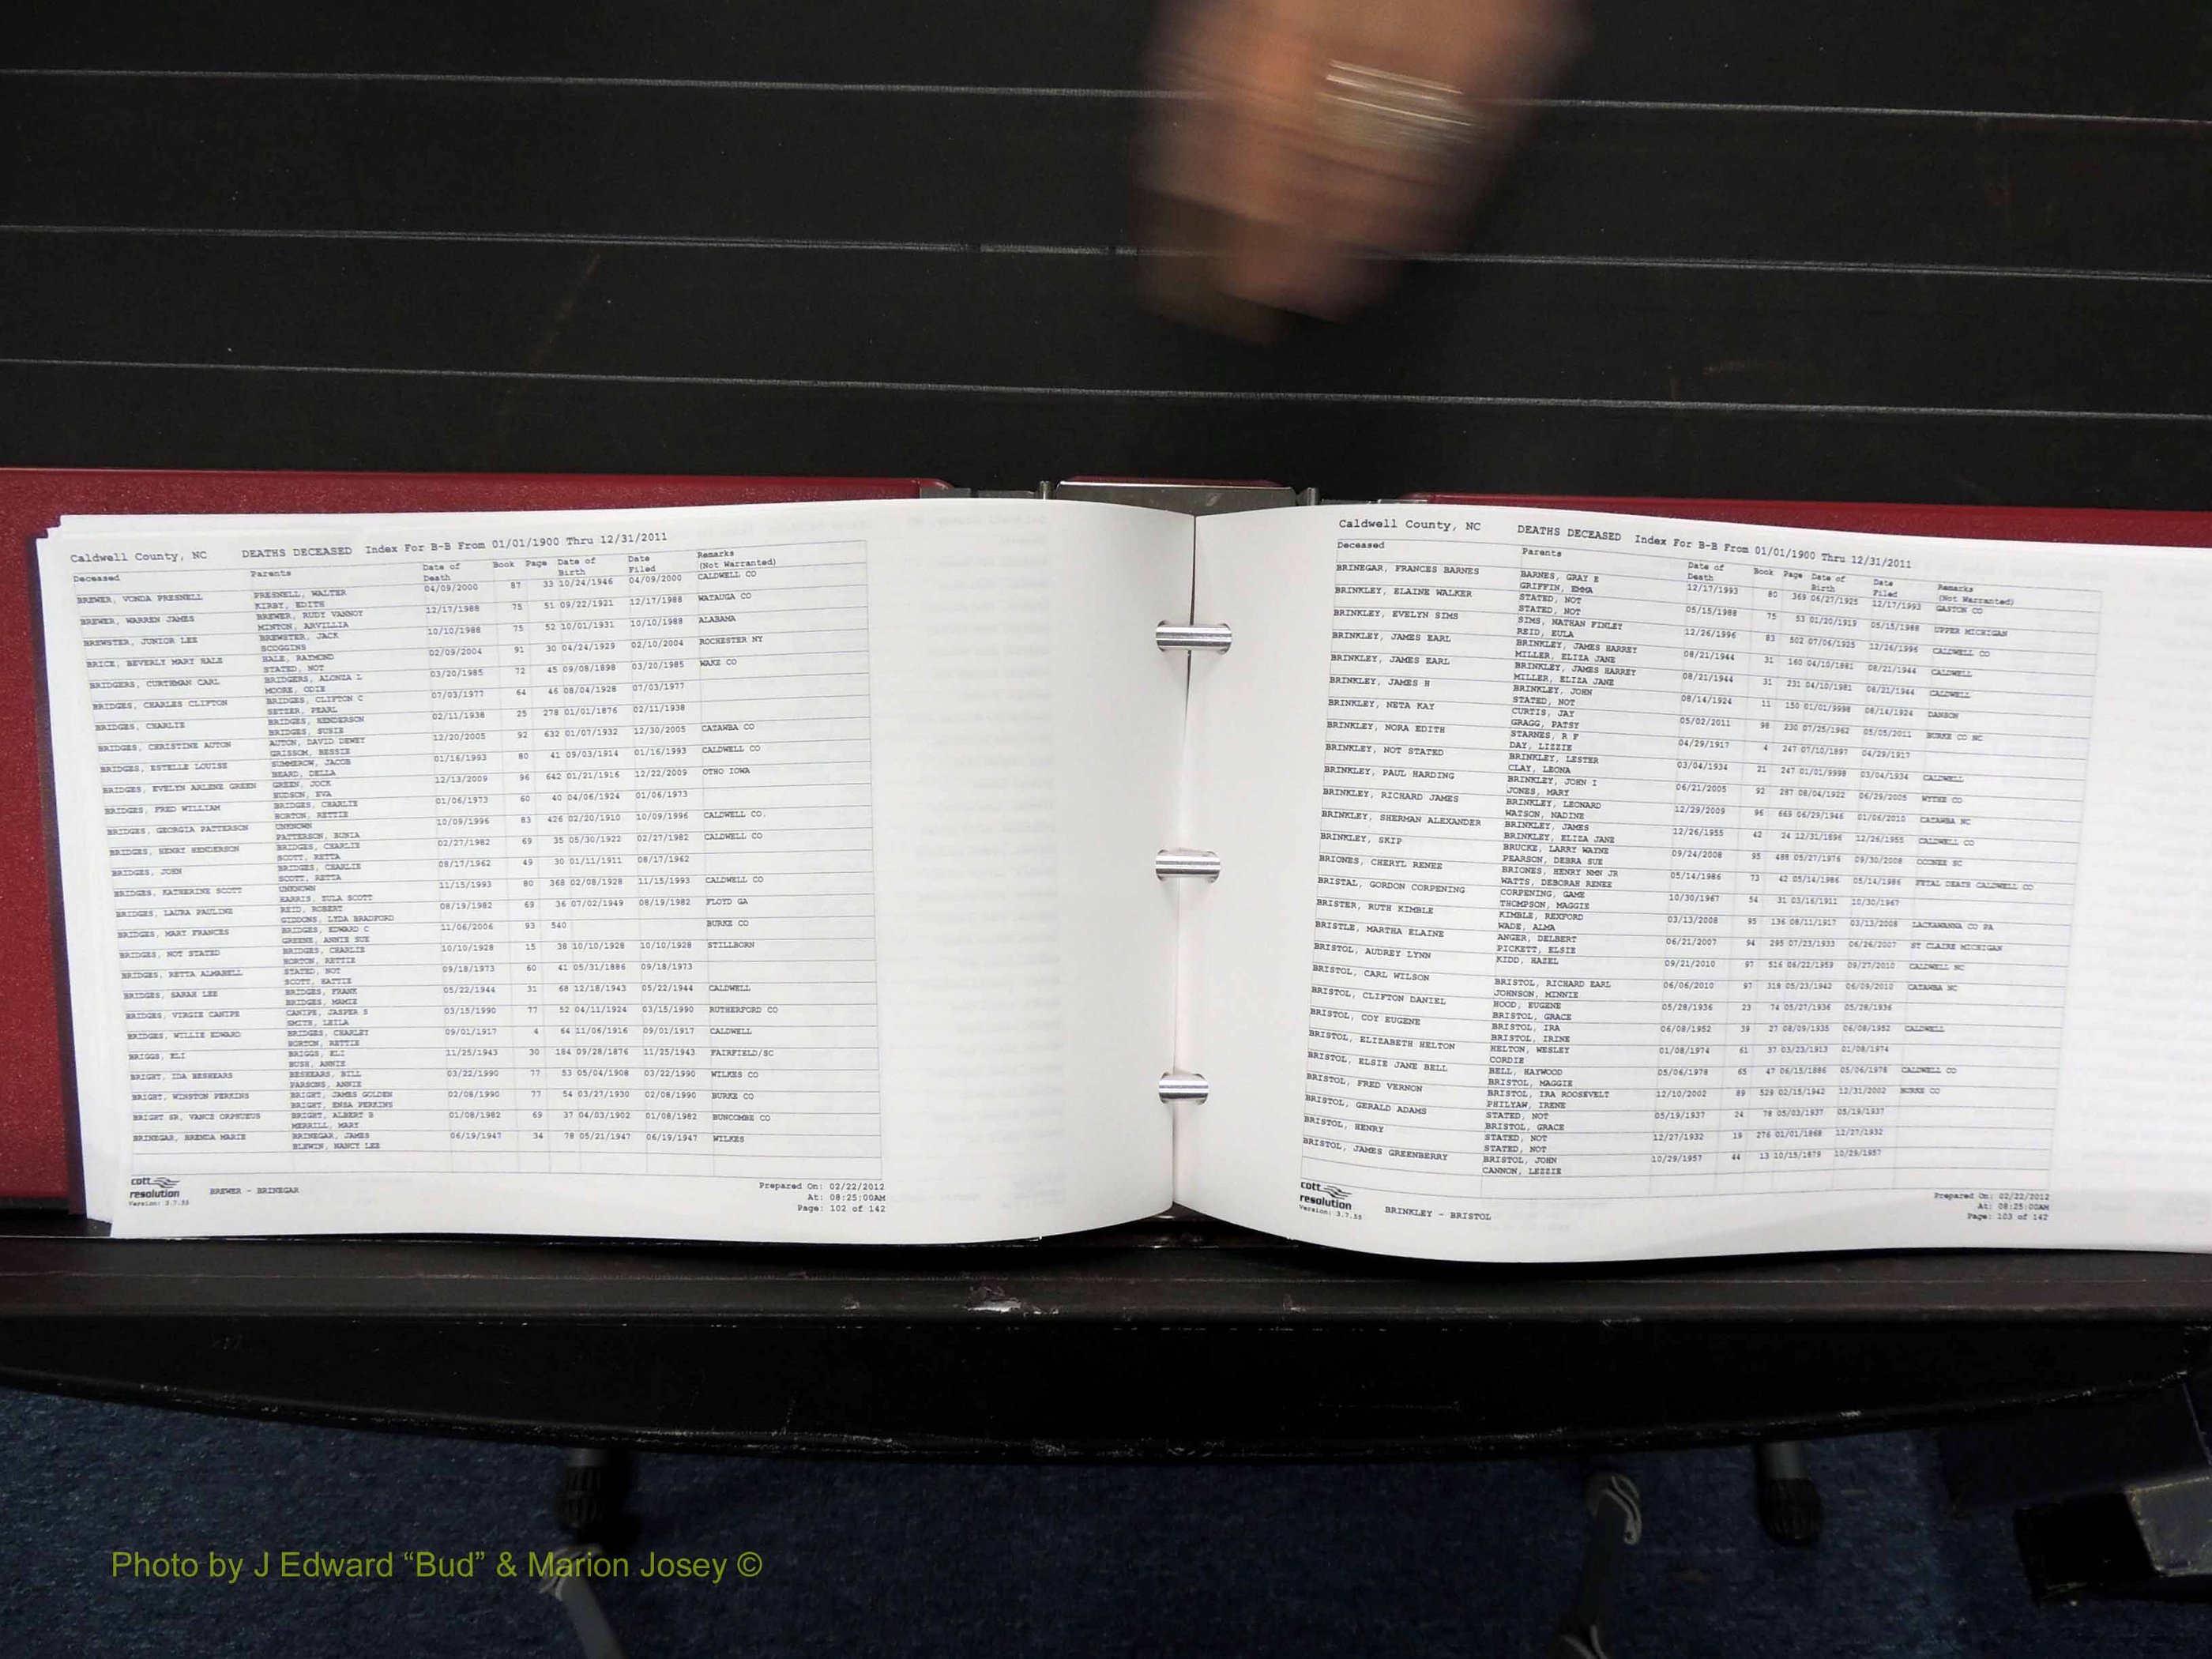 Caldwell County, NC DEATHS DECEASED Index For B-B From 01/01/1900 Thru 12/31/2011
Deceased Parents Date of Death Book Page Date of Birth Date Filed Remarks (Not Warranted)
BREWER, VONDA PRESNELL PRESNELL, WALTER 04/09/2000 87 33 10/24/1946 04/09/2000 CALDWELL CO
KIRBY, EDITH
BREWER, WARREN JAMES BREWER, RUDY VANNOY 12/17/1988 75 51 09/22/1921 12/17/1988 WATAUGA CO
MINTON, ARVILLIA
BREWSTER, JUNIOR LEE BREWSTER, JACK 10/10/1988 75 52 10/01/1931 10/10/1988 ALABAMA
SCOGGINS
BRICE, BEVERLY MARY HALE HALE, RAYMOND 02/09/2004 91 30 04/24/1929 02/10/2004 ROCHESTER NY
STATED, NOT
BRIDGERS, CURTHMAN CARL BRIDGERS, ALONZA L 03/20/1985 72 45 09/08/1898 03/20/1985 WAKE CO
MOORE, ODIE
BRIDGES, CHARLES CLIFTON BRIDGES, CLIFTON C 07/03/1977 64 46 08/04/1928 07/03/1977
SETZER, PEARL
BRIDGES, CHARLIE BRIDGES, HENDERSON 02/11/1938 25 278 01/01/1876 02/11/1938
BRIDGES, SUSIE
BRIDGES, CHRISTINE AUTON AUTON, DAVID DEWEY 12/20/2005 92 632 01/07/1932 12/30/2005 CATAWBA CO
GRISSOM, BESSIE
BRIDGES, ESTELLE LOUISE SUMMEROW, JACOB 01/16/1993 80 41 09/03/1914 01/16/1993 CALDWELL CO
BEARD, DELLA
BRIDGES, EVELYN ARLENE GREEN GREEN, JOCK 12/13/2009 96 642 01/21/1916 12/22/2009 OTHO IOWA
HUDSON, EVA
BRIDGES, FRED WILLIAM BRIDGES, CHARLIE 01/06/1973 60 40 04/06/1924 01/06/1973
HORTON, RETTIE
BRIDGES, GEORGIA PATTERSON UNKNOWN 10/09/1996 83 426 02/20/1910 10/09/1996 CALDWELL CO.
PATTERSON, BUNIA
BRIDGES, HENRY HENDERSON BRIDGES, CHARLIE 02/27/1982 69 35 05/30/1922 02/27/1982 CALDWELL CO
SCOTT, RETTA
BRIDGES, JOHN BRIDGES, CHARLIE 08/17/1962 49 30 01/11/1911 08/17/1962
SCOTT, RETTA
BRIDGES, KATHERINE SCOTT UNKNOWN 11/15/1993 80 368 02/08/1928 11/15/1993 CALDWELL CO
HARRIS, EULA SCOTT
BRIDGES, LAURA PAULINE REID, ROBERT 08/19/1982 69 36 07/02/1949 08/19/1982 FLOYD GA
GIDDONS, LYDA BRADFORD
BRIDGES, MARY FRANCES BRIDGES, EDWARD C 11/06/2006 93 540 BURKE CO
GREENE, ANNIE SUE
BRIDGES, NOT STATED BRIDGES, CHARLIE 10/10/1928 15 38 10/10/1928 10/10/1928 STILLBORN
HORTON, RETTIE
BRIDGES, RETTA ALMABELL STATED, NOT 09/18/1973 60 41 05/31/1886 09/18/1973
SCOTT, HATTIE
BRIDGES, SARAH LEE BRIDGES, FRANK 05/22/1944 31 68 12/18/1943 05/22/1944 CALDWELL
BRIDGES, MAMIE
BRIDGES, VIRGIE CANIPE CANIPE, JASPER S 03/15/1990 77 52 04/11/1924 03/15/1990 RUTHERFORD CO
SMITH, LEILA
BRIDGES, WILLIE EDWARD BRIDGES, CHARLEY 09/01/1917 4 64 11/06/1916 09/01/1917 CALDWELL
HORTON, RETTIE
BRIGGS, ELI BRIGGS, ELI 11/25/1943 30 184 09/28/1876 11/25/1943 FAIRFIELD/SC
BUSH, ANNIE
BRIGHT, IDA BESHEARS BESHEARS, BILL 03/22/1990 77 53 05/04/1908 03/22/1990 WILKES CO
PARSONS, ANNIE
BRIGHT, WINSTON PERKINS BRIGHT, JAMES GOLDEN 02/08/1990 77 54 03/27/1930 02/08/1990 BURKE CO
BRIGHT, ENSA PERKINS
BRIGHT SR, VANCE ORPHUEUS BRIGHT, ALBERT B 01/08/1982 69 37 04/03/1902 01/08/1982 BUNCOMBE CO
MERRILL, MARY
BRINEGAR, BRENDA MARIE BRINEGAR, JAMES 06/19/1947 34 78 05/21/1947 06/19/1947 WILKES
BLEWIN, NANCY LEE
cott resolution Version: 3.7.55
BREWER - BRINEGAR
Prepared On: 02/22/2012
At: 08:25:00AM
Page: 102 of 142
Caldwell County, NC DEATHS DECEASED Index For B-B From 01/01/1900 Thru 12/31/2011
Deceased Parents Date of Death Book Page Date of Birth Date Filed Remarks (Not Warranted)
BRINEGAR, FRANCES BARNES BARNES, GRAY E 12/17/1993 80 369 06/27/1925 12/17/1993 GASTON CO
GRIFFIN, EMMA
BRINKLEY, ELAINE WALKER STATED, NOT 05/15/1988 75 53 01/20/1919 05/15/1988 UPPER MICHIGAN
STATED, NOT
BRINKLEY, EVELYN SIMS SIMS, NATHAN FINLEY 12/26/1996 83 502 07/06/1925 12/26/1996 CALDWELL CO
REID, EULA
BRINKLEY, JAMES EARL BRINKLEY, JAMES HARREY 08/21/1944 31 160 04/10/1881 08/21/1944 CALDWELL
MILLER, ELIZA JANE
BRINKLEY, JAMES EARL BRINKLEY, JAMES HARREY 08/21/1944 31 231 04/10/1981 08/21/1944 CALDWELL
MILLER, ELIZA JANE
BRINKLEY, JAMES H BRINKLEY, JOHN 08/14/1924 11 150 01/01/9998 08/14/1924 DANSON
STATED, NOT
BRINKLEY, NETA KAY CURTIS, JAY 05/02/2011 98 230 07/25/1962 05/05/2011 BURKE CO NC
GRAGG, PATSY
BRINKLEY, NORA EDITH STARNES, R F 04/29/1917 4 247 07/10/1897 04/29/1917
DAY, LIZZIE
BRINKLEY, NOT STATED BRINKLEY, LESTER 03/04/1934 21 247 01/01/9998 03/04/1934 CALDWELL
CLAY, LEONA
BRINKLEY, PAUL HARDING BRINKLEY, JOHN I 06/21/2005 92 287 08/04/1922 06/29/2005 WYTHE CO
JONES, MARY
BRINKLEY, RICHARD JAMES BRINKLEY, LEONARD 12/29/2009 96 669 06/29/1946 01/06/2010 CATAWBA NC
WATSON, NADINE
BRINKLEY, SHERMAN ALEXANDER BRINKLEY, JAMES 12/26/1955 42 24 12/31/1896 12/26/1955 CALDWELL CO
BRINKLEY, ELIZA JANE
BRINKLEY, SKIP BRUCKE, LARRY WAYNE 09/24/2008 95 488 05/27/1976 09/30/2008 OCONEE SC
PEARSON, DEBRA SUE
BRIONES, CHERYL RENEE BRIONES, HENRY NMN JR 05/14/1986 73 42 05/14/1986 05/14/1986 FETAL DEATH CALDWELL CO
WATTS, DEBORAH RENEE
BRISTAL, GORDON CORPENING CORPENING, GAME 10/30/1967 54 31 03/16/1911 10/30/1967
THOMPSON, MAGGIE
BRISTER, RUTH KIMBLE KIMBLE, REXFORD 03/13/2008 95 136 08/11/1917 03/13/2008 LACKAWANNA CO PA
WADE, ALMA
BRISTLE, MARTHA ELAINE ANGER, DELBERT 06/21/2007 94 295 07/23/1933 06/26/2007 ST CLAIRE MICHIGAN
PICKETT, ELSIE
BRISTOL, AUDREY LYNN KIDD, HAZEL 09/21/2010 97 516 06/22/1959 09/27/2010 CALDWELL NC
BRISTOL, CARL WILSON BRISTOL, RICHARD EARL 06/06/2010 97 318 05/23/1942 06/09/2010 CATAWBA NC
JOHNSON, MINNIE
BRISTOL, CLIFTON DANIEL HOOD, EUGENE 05/28/1936 23 74 05/27/1936 05/28/1936
BRISTOL, GRACE
BRISTOL, COY EUGENE BRISTOL, IRA 06/08/1952 39 27 08/09/1935 06/08/1952 CALDWELL
BRISTOL, IRINE
BRISTOL, ELIZABETH HELTON HELTON, WESLEY 01/08/1974 61 37 03/23/1913 01/08/1974
CORDIE
BRISTOL, ELSIE JANE BELL BELL, HAYWOOD 05/06/1978 65 47 06/15/1886 05/06/1978 CALDWELL CO
BRISTOL, MAGGIE
BRISTOL, FRED VERNON BRISTOL, IRA ROOSEVELT 12/10/2002 89 529 02/15/1942 12/31/2002 BURKE CO
PHILYAW, IRENE
BRISTOL, GERALD ADAMS STATED, NOT 05/19/1937 24 78 05/03/1937 05/19/1937
BRISTOL, GRACE
BRISTOL, HENRY STATED, NOT 12/27/1932 19 276 01/01/1868 12/27/1932
STATED, NOT
BRISTOL, JAMES GREENBERRY BRISTOL, JOHN 10/29/1957 44 13 10/15/1879 10/29/1957
CANNON, LEZZIE
cott resolution Version: 3.7.55
BRINKLEY - BRISTOL
Prepared On: 02/22/2012
At: 08:25:00AM
Page: 103 of 142
Photo by J Edward “Bud” & Marion Josey ©